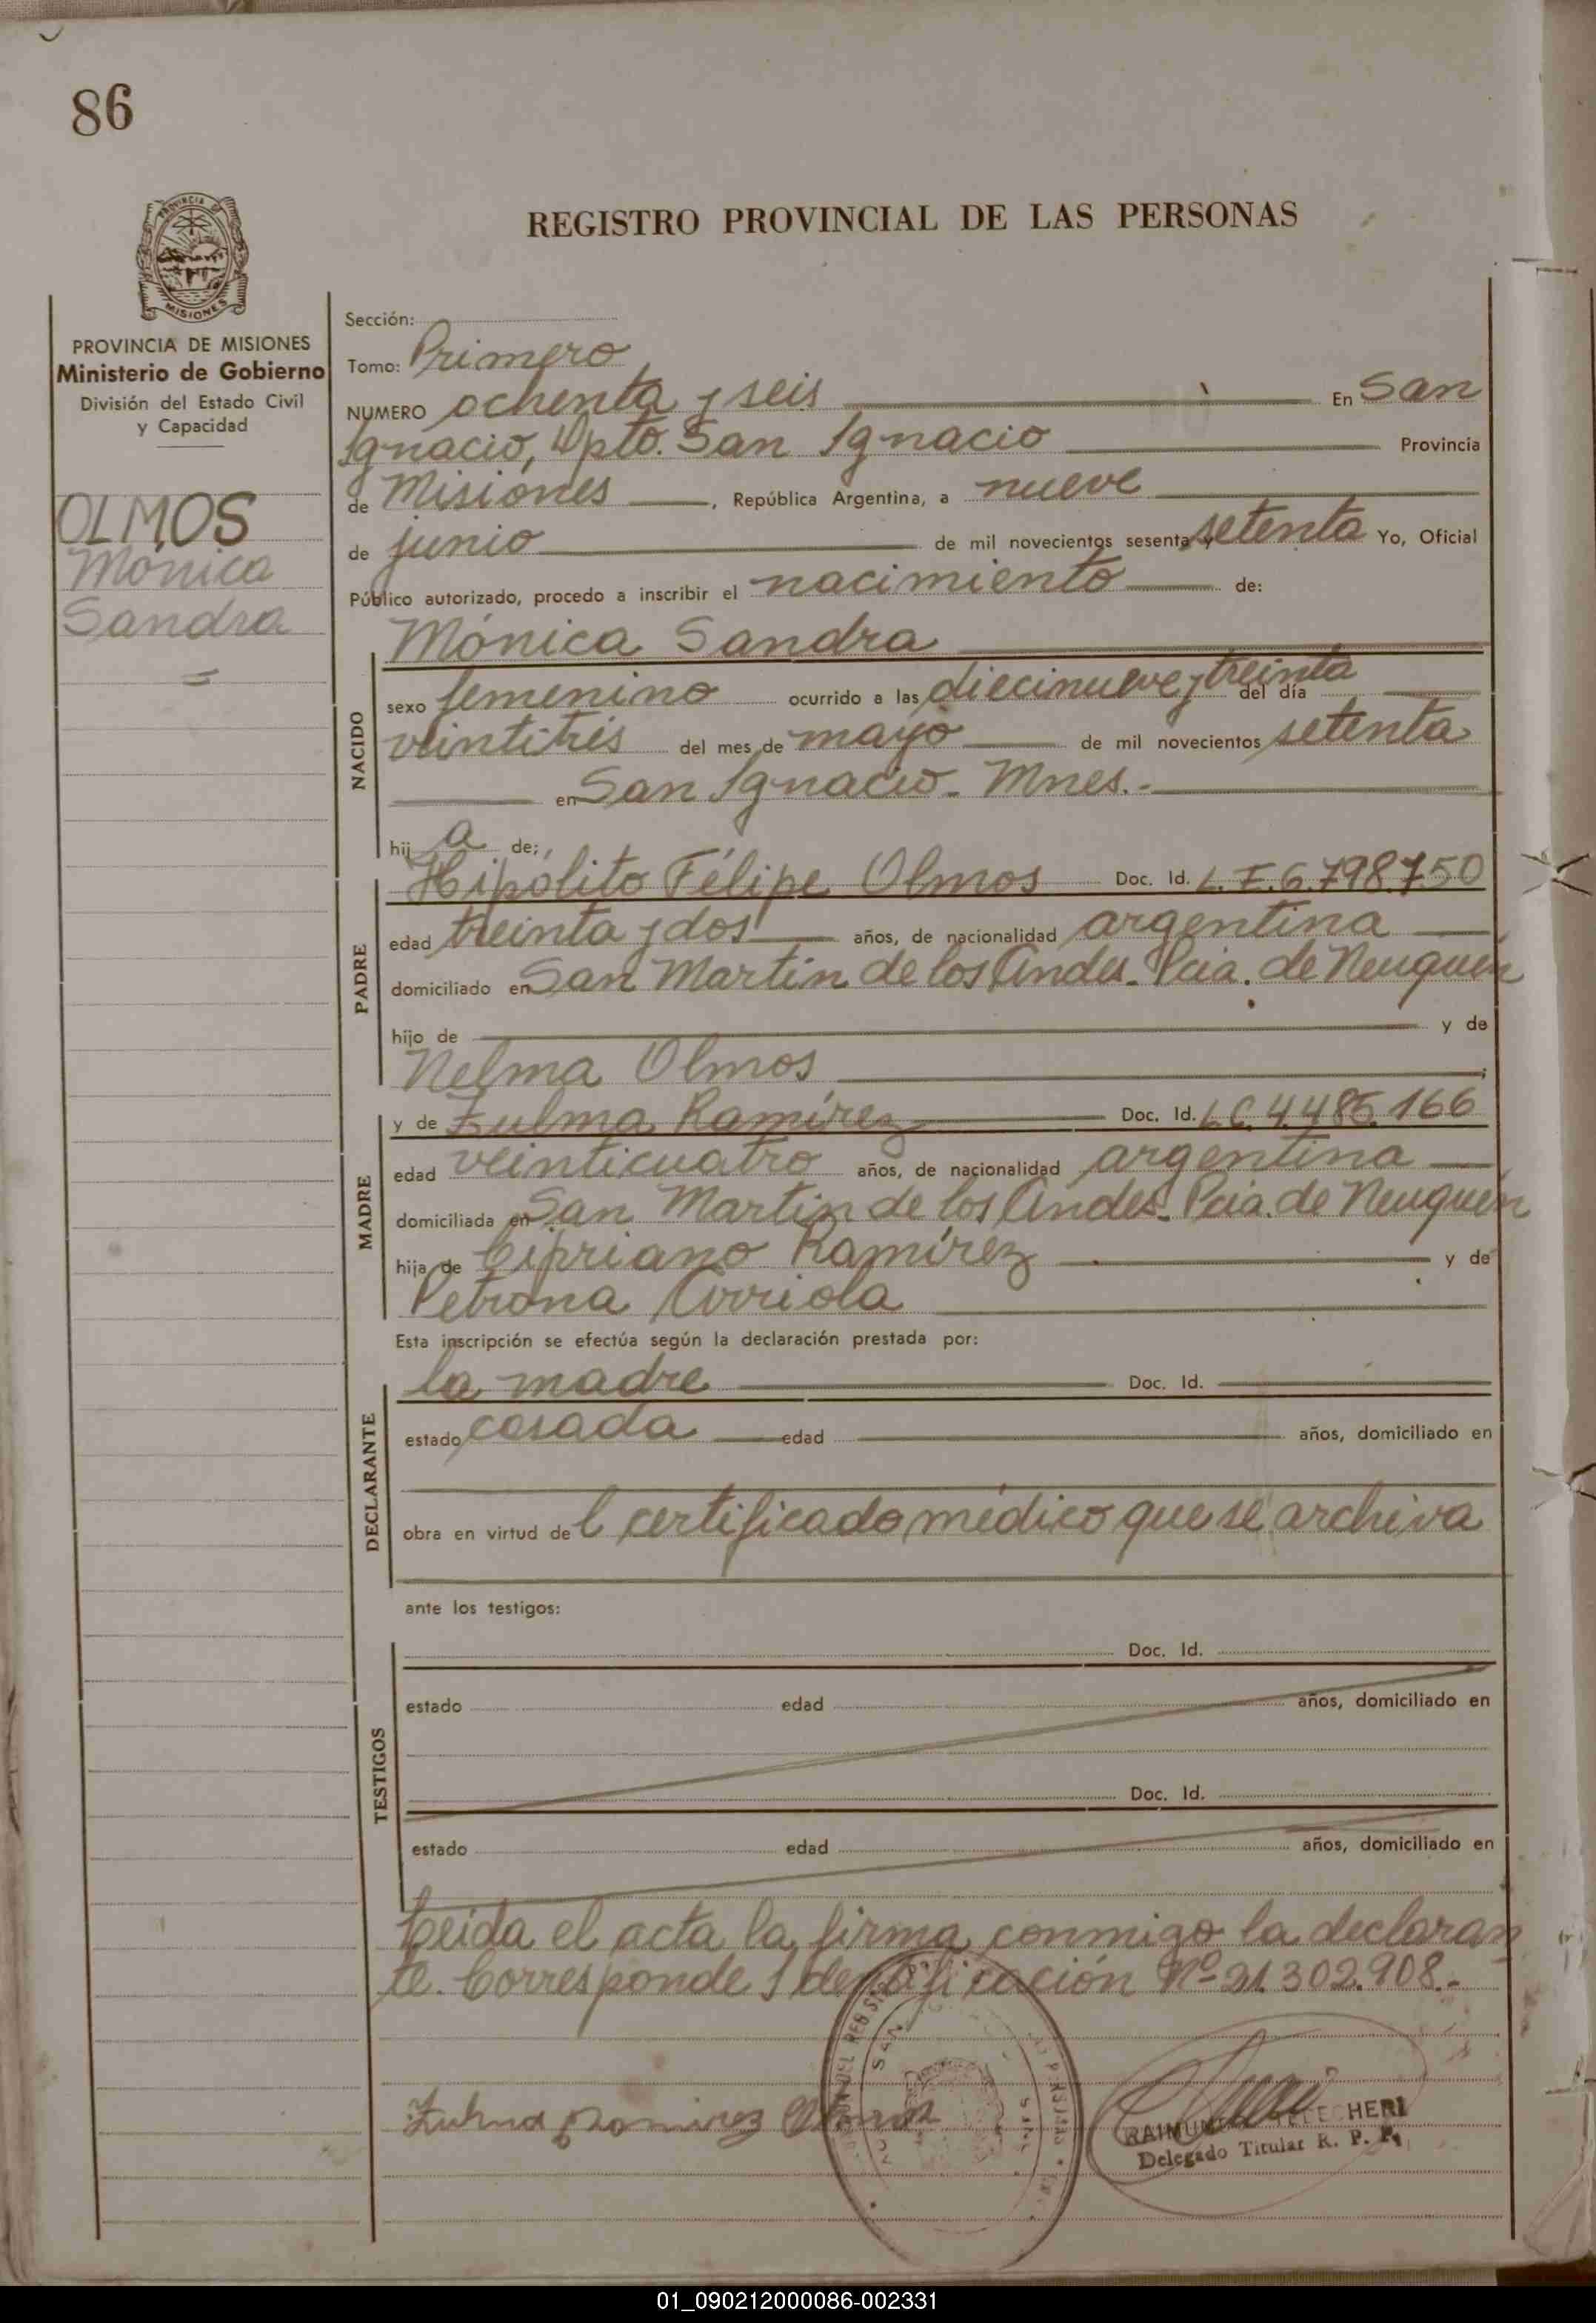 86
REGISTRO PROVINCIAL DE LAS PERSONAS
PROVINCIA DE MISIONES
Ministerio de Gobierno
División del Estado Civil
y Capacidad
OLMOS
Mónica
Sandra
Sección:
Tomo: Primero
NUMERO ochenta y seis En San
Ignacio, Dpto. San Ignacio Provincia
de Misiones, República Argentina, a nueve
de junio de mil novecientos sesenta y setenta Yo, Oficial
Público autorizado, procedo a inscribir el nacimiento de:
Mónica Sandra
NACIDO
sexo femenino ocurrido a las diecinueve y treinta del día
veintitrés del mes de mayo de mil novecientos setenta
en San Ignacio - Mnes.-
hij a de:
PADRE
Hipólito Félipe Olmos Doc. Id. L.E. 6.798.750
edad treinta y dos años, de nacionalidad argentina
domiciliado en San Martin de los Andes - Pcia. de Neuquén
hijo de y de
Nelma Olmos ;
MADRE
y de Zulma Ramírez Doc. Id. L.C. 4.485.166
edad veinticuatro años, de nacionalidad argentina
domiciliada en San Martin de los Andes - Pcia. de Neuquén
hija de Cipriano Ramírez y de
Petrona Arriola
Esta inscripción se efectúa según la declaración prestada por:
DECLARANTE
la madre Doc. Id.
estado casada edad años, domiciliado en
obra en virtud de l certificado médico que se archiva
ante los testigos:
TESTIGOS
Doc. Id.
estado edad años, domiciliado en
Doc. Id.
estado edad años, domiciliado en
Leida el acta la firma conmigo la declaran
te. Corresponde Identificación Nº 21.302.908.-
Zulma Ramirez
HERI
Delegado Titular R. P. P.
01_090212000086-002331